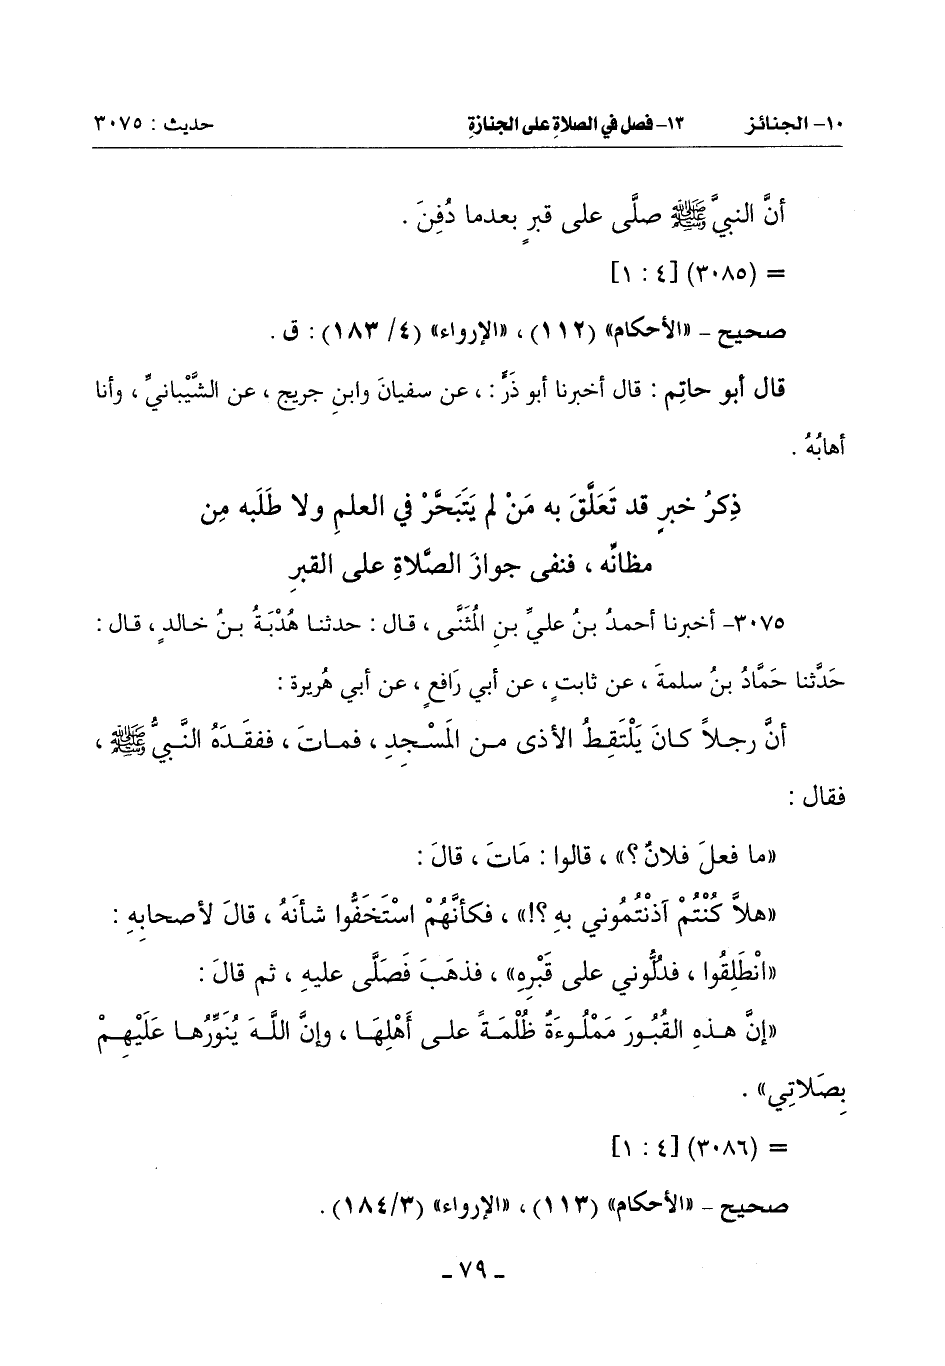 ١٠- الجنائز ١٣- فصل في الصلاةِ على الجنازةِ حديث : ٣٠٧٥
أنَّ النبيَّ ﷺ صلَّى على قبرٍ بعدما دُفِنَ .
= (٣٠٨٥) [٤ : ١]
صحيح - «الأحكام» (١١٢) ، «الإرواء» (٤/ ١٨٣) : ق .
قال أبو حاتِم : قال أخبرنا أبو ذَرٍّ : ، عن سفيانَ وابنِ جريجٍ ، عن الشَّيْبانيِّ ، وأنا
أهابُهُ .
ذِكرُ خبرٍ قد تَعَلَّقَ به مَنْ لم يَتَبَحَّرْ في العلمِ ولا طَلَبه مِن
مظانِّه ، فنفى جوازَ الصَّلاةِ على القبرِ
٣٠٧٥- أخبرنا أحمدُ بنُ عليِّ بنِ المُثَنَّى ، قال : حدثنا هُدْبَةُ بنُ خالدٍ ، قال :
حَدَّثنا حَمَّادُ بنُ سلمةَ ، عن ثابتٍ ، عن أبي رَافعٍ ، عن أبي هُريرة :
أنَّ رجلاً كانَ يَلْتَقِطُ الأذى من المَسْجِدِ ، فماتَ ، ففقَدَهُ النَّبيُّ ﷺ ،
فقال :
«ما فعلَ فلانٌ ؟» ، قالوا : مَاتَ ، قالَ :
«هلاَّ كُنْتُمْ آذَنْتُمُوني بهِ ؟!» ، فكأنَّهُمْ اسْتَخَفُّوا شأنَهُ ، قالَ لأصحابِهِ :
«انْطَلِقُوا ، فدُلُّوني على قَبْرِهِ» ، فذهَبَ فَصَلَّى عليهِ ، ثم قالَ :
«إنَّ هذهِ القُبُورَ مَمْلُوءَةٌ ظُلْمَةً على أَهْلِهَا ، وإنَّ اللَّهَ يُنَوِّرُها عَلَيْهِمْ
بِصَلاتِي» .
= (٣٠٨٦) [٤ : ١]
صحيح - «الأحكام» (١١٣) ، «الإرواء» (١٨٤/٣) .
- ٧٩ -